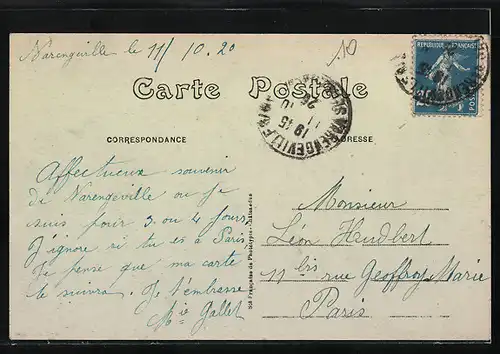 Varengeville le 11/10.20
10
REPUBLIQUE FRANÇAISE
Carte Postale
VARENGEVILLE
19 15
11
10
CORRESPONDANCE
ADRESSE
Affectueux souvenir
de Varengeville ou je
suis pour 3 ou 4 jours
J'ignore si tu es à Paris
Je pense que ma carte
te suivra. Je t'embrasse
Mie Gallet
Monsieur
Léon Heudbert
11 bis rue Geoffroy Marie
Paris